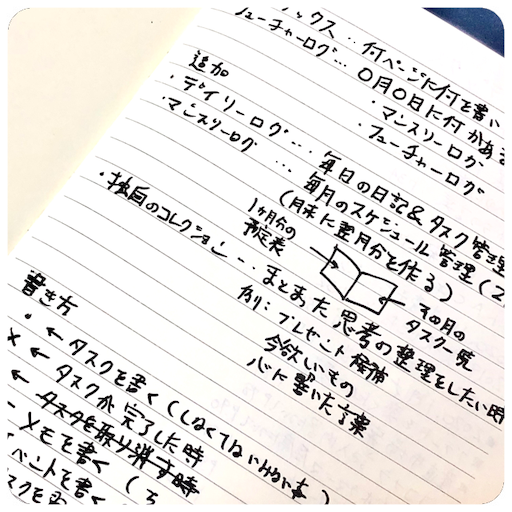 ックス‥何ページに何を書い
フューチャーログ… 〇月〇日に何がある
・マンスリーログ
・フューチャーログ
追加
・デイリーログ… 毎日の日記&タスク管理
・マンスリーログ … 毎月のスケジュール管理(2
(月末に翌月分を作る)
1ヶ月分の
予定表
その月の
タスク一覧
・独自のコレクション… まとまった思考の整理をしたい時
例:プレゼント候補
今欲しいもの
心に響いた言葉
書き方
・ ← タスクを書く(しなくてはいけない事)
× ← タスクが完了した時
← タスクを取り消す時
− メモを書く
ベントを書く
スクを